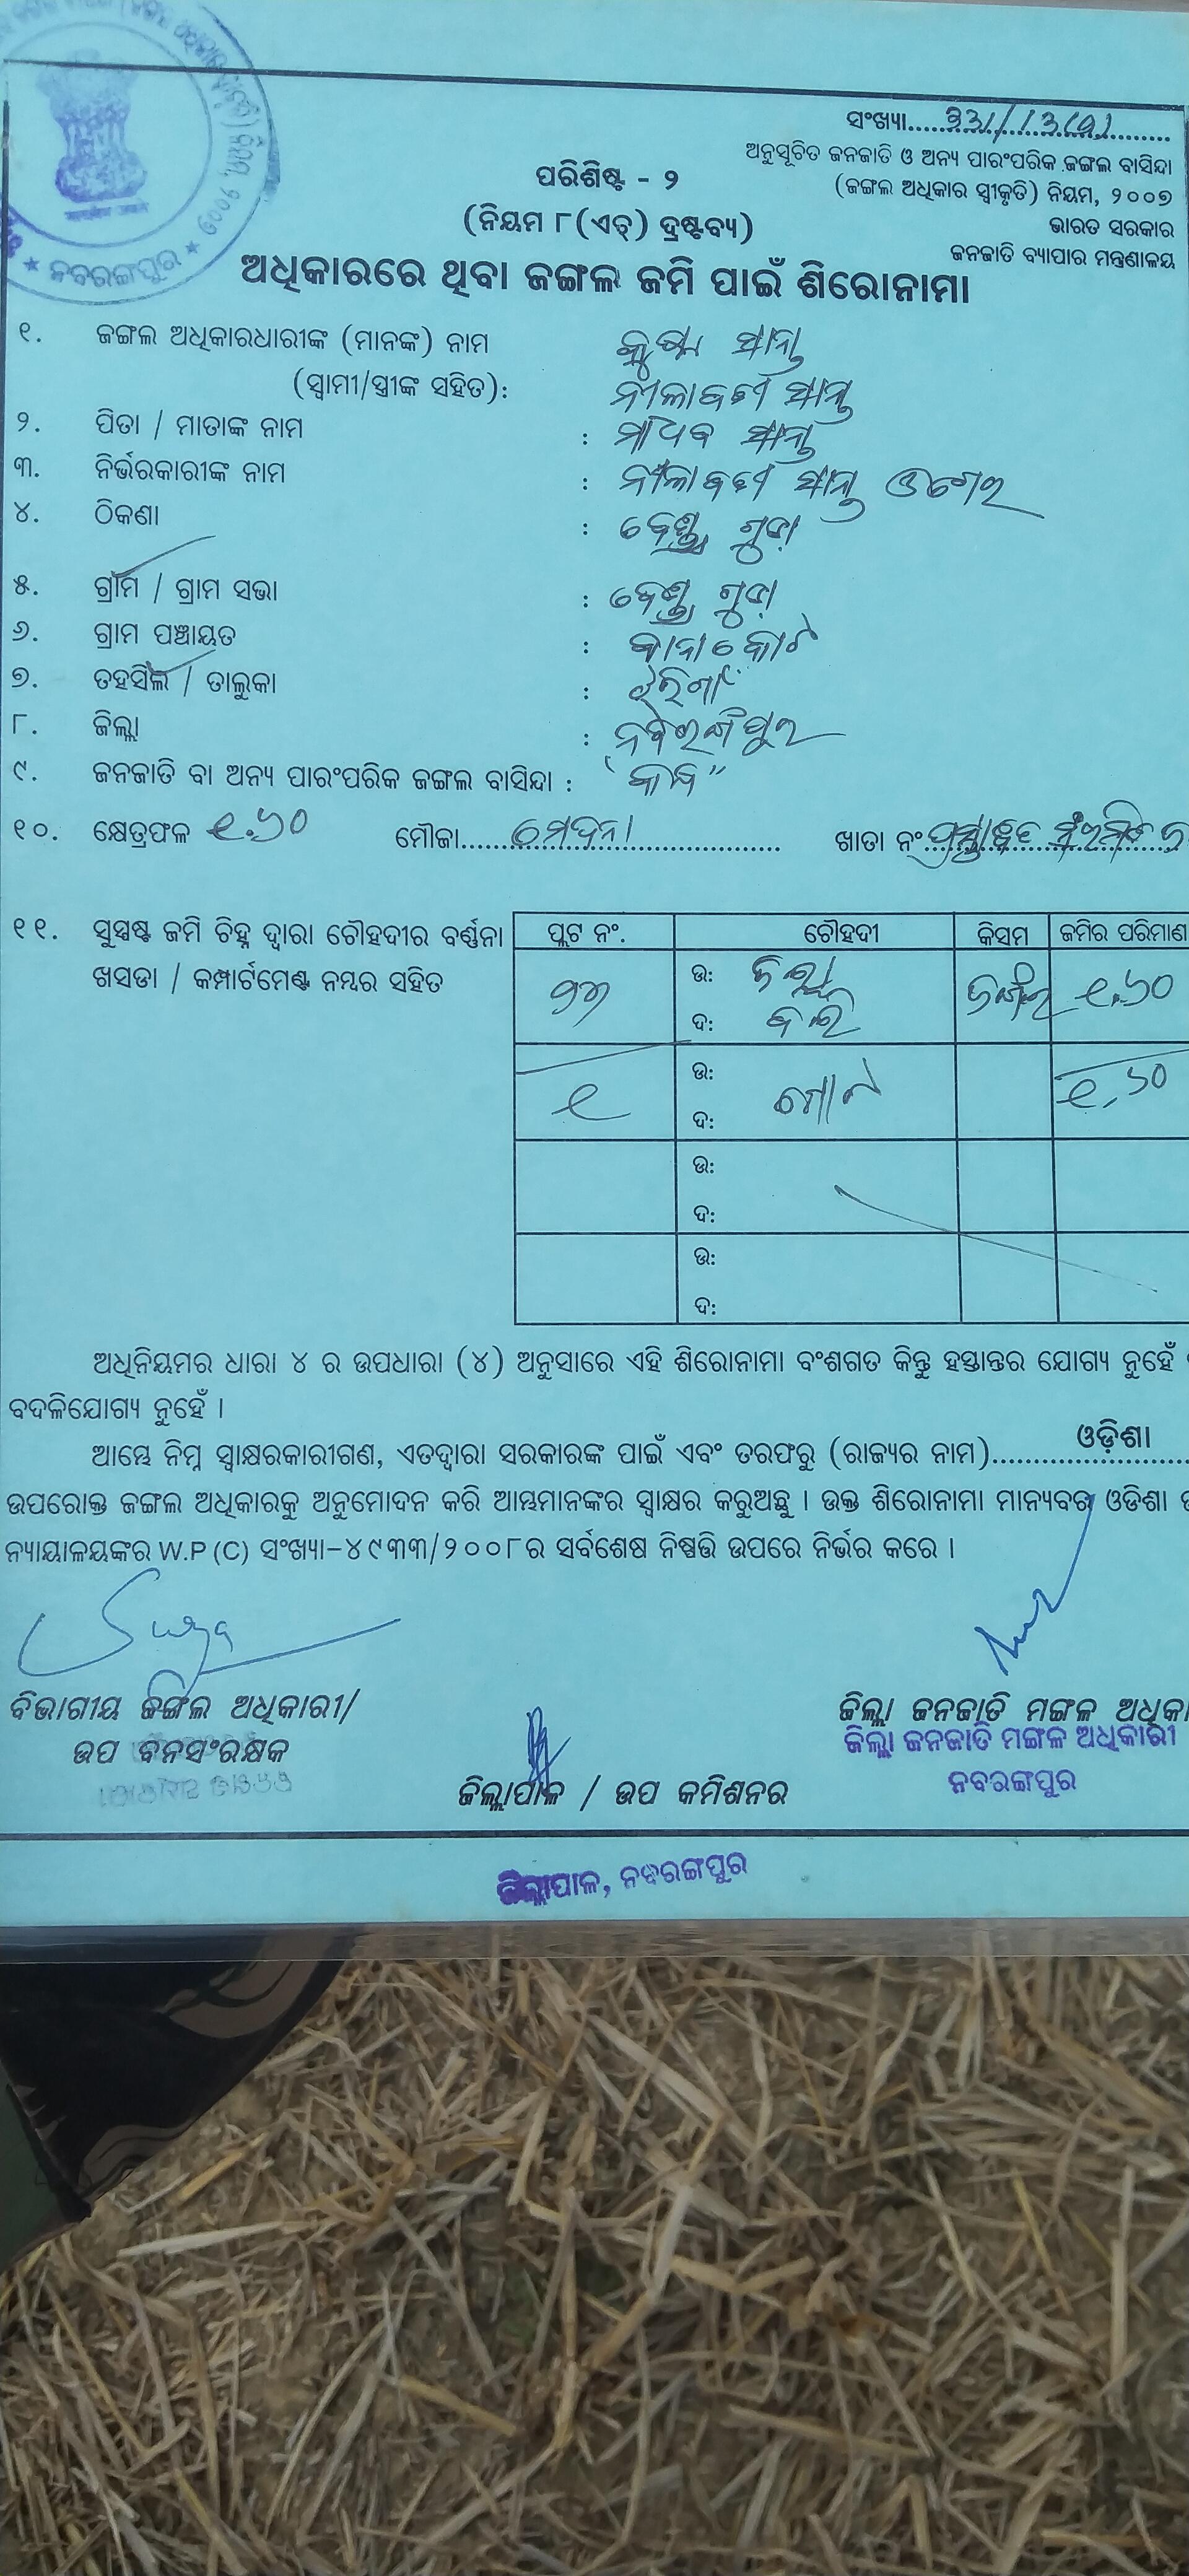 ସଂଖ୍ୟା.....331/13(୩)
ଅନୁସୂଚିତ ଜନଜାତି ଓ ଅନ୍ୟ ପାରଂପରିକ ଜଙ୍ଗଲ ବାସିନ୍ଦା
(ଜଙ୍ଗଲ ଅଧିକାର ସ୍ୱୀକୃତି) ନିୟମ, ୨୦୦୭
ଭାରତ ସରକାର
ଜନଜାତି ବ୍ୟାପାର ମନ୍ତ୍ରଣାଳୟ
ପରିଶିଷ୍ଟ - ୨
(ନିୟମ ୮(ଏଚ୍) ଦ୍ରଷ୍ଟବ୍ୟ)
★ ନବରଙ୍ଗପୁର ★
ଅଧିକାରରେ ଥିବା ଜଙ୍ଗଲ ଜମି ପାଇଁ ଶିରୋନାମା
୧. ଜଙ୍ଗଲ ଅଧିକାରଧାରୀଙ୍କ (ମାନଙ୍କ) ନାମ କୃଷ୍ଣ ସାନ୍ତ
(ସ୍ୱାମୀ/ସ୍ତ୍ରୀଙ୍କ ସହିତ): ନୀଳାବତୀ ସାନ୍ତ
୨. ପିତା / ମାତାଙ୍କ ନାମ : ମାଧବ ସାନ୍ତ
୩. ନିର୍ଭରକାରୀଙ୍କ ନାମ : ନୀଳାବତୀ ସାନ୍ତ
୪. ଠିକଣା : ବେଣ୍ଡ୍ରା ଗୁଡ଼ା
୫. ଗ୍ରାମ / ଗ୍ରାମ ସଭା : ବେଣ୍ଡ୍ରା ଗୁଡ଼ା
୬. ଗ୍ରାମ ପଞ୍ଚାୟତ :
୭. ତହସିଲ / ତାଲୁକା : ଝରିଗାଁ
୮. ଜିଲ୍ଲା : ନବରଙ୍ଗପୁର
୯. ଜନଜାତି ବା ଅନ୍ୟ ପାରଂପରିକ ଜଙ୍ଗଲ ବାସିନ୍ଦା :
୧୦. କ୍ଷେତ୍ରଫଳ ୧.୬୦ ମୌଜା..... ମେଦନା ଖାତା ନଂ ପ୍ରସ୍ତାବିତ
୧୧. ସୁସ୍ପଷ୍ଟ ଜମି ଚିହ୍ନ ଦ୍ୱାରା ଚୌହଦୀର ବର୍ଣ୍ଣନା
ଖସଡା / କମ୍ପାର୍ଟମେଣ୍ଟ ନମ୍ବର ସହିତ
ପ୍ଲଟ ନଂ. ଚୌହଦୀ କିସମ ଜମିର ପରିମାଣ
ଉ: ୧.୬୦
ଦ:
୧ ଉ: ୧.୬୦
ଦ:
ଉ:
ଦ:
ଉ:
ଦ:
ଅଧିନିୟମର ଧାରା ୪ ର ଉପଧାରା (୪) ଅନୁସାରେ ଏହି ଶିରୋନାମା ବଂଶଗତ କିନ୍ତୁ ହସ୍ତାନ୍ତର ଯୋଗ୍ୟ ନୁହେଁ
ବଦଳିଯୋଗ୍ୟ ନୁହେଁ ।
ଆମ୍ଭେ ନିମ୍ନ ସ୍ୱାକ୍ଷରକାରୀଗଣ, ଏତଦ୍ୱାରା ସରକାରଙ୍କ ପାଇଁ ଏବଂ ତରଫରୁ (ରାଜ୍ୟର ନାମ).....ଓଡ଼ିଶା
ଉପରୋକ୍ତ ଜଙ୍ଗଲ ଅଧିକାରକୁ ଅନୁମୋଦନ କରି ଆମ୍ଭମାନଙ୍କର ସ୍ୱାକ୍ଷର କରୁଅଛୁ । ଉକ୍ତ ଶିରୋନାମା ମାନ୍ୟବର ଓଡିଶା
ନ୍ୟାୟାଳୟଙ୍କର W.P (C) ସଂଖ୍ୟା-୪୯୩୩/୨୦୦୮ର ସର୍ବଶେଷ ନିଷ୍ପତ୍ତି ଉପରେ ନିର୍ଭର କରେ ।
ବିଭାଗୀୟ ଜଙ୍ଗଲ ଅଧିକାରୀ/
ଉପ ବନସଂରକ୍ଷକ
ଜିଲ୍ଲା ଜନଜାତି ମଙ୍ଗଳ ଅଧିକା
ଜିଲ୍ଲା ଜନଜାତି ମଙ୍ଗଳ ଅଧିକାରୀ
ନବରଙ୍ଗପୁର
ଜିଲ୍ଲାପାଳ / ଉପ କମିଶନର
ଜିଲ୍ଲାପାଳ, ନବରଙ୍ଗପୁର